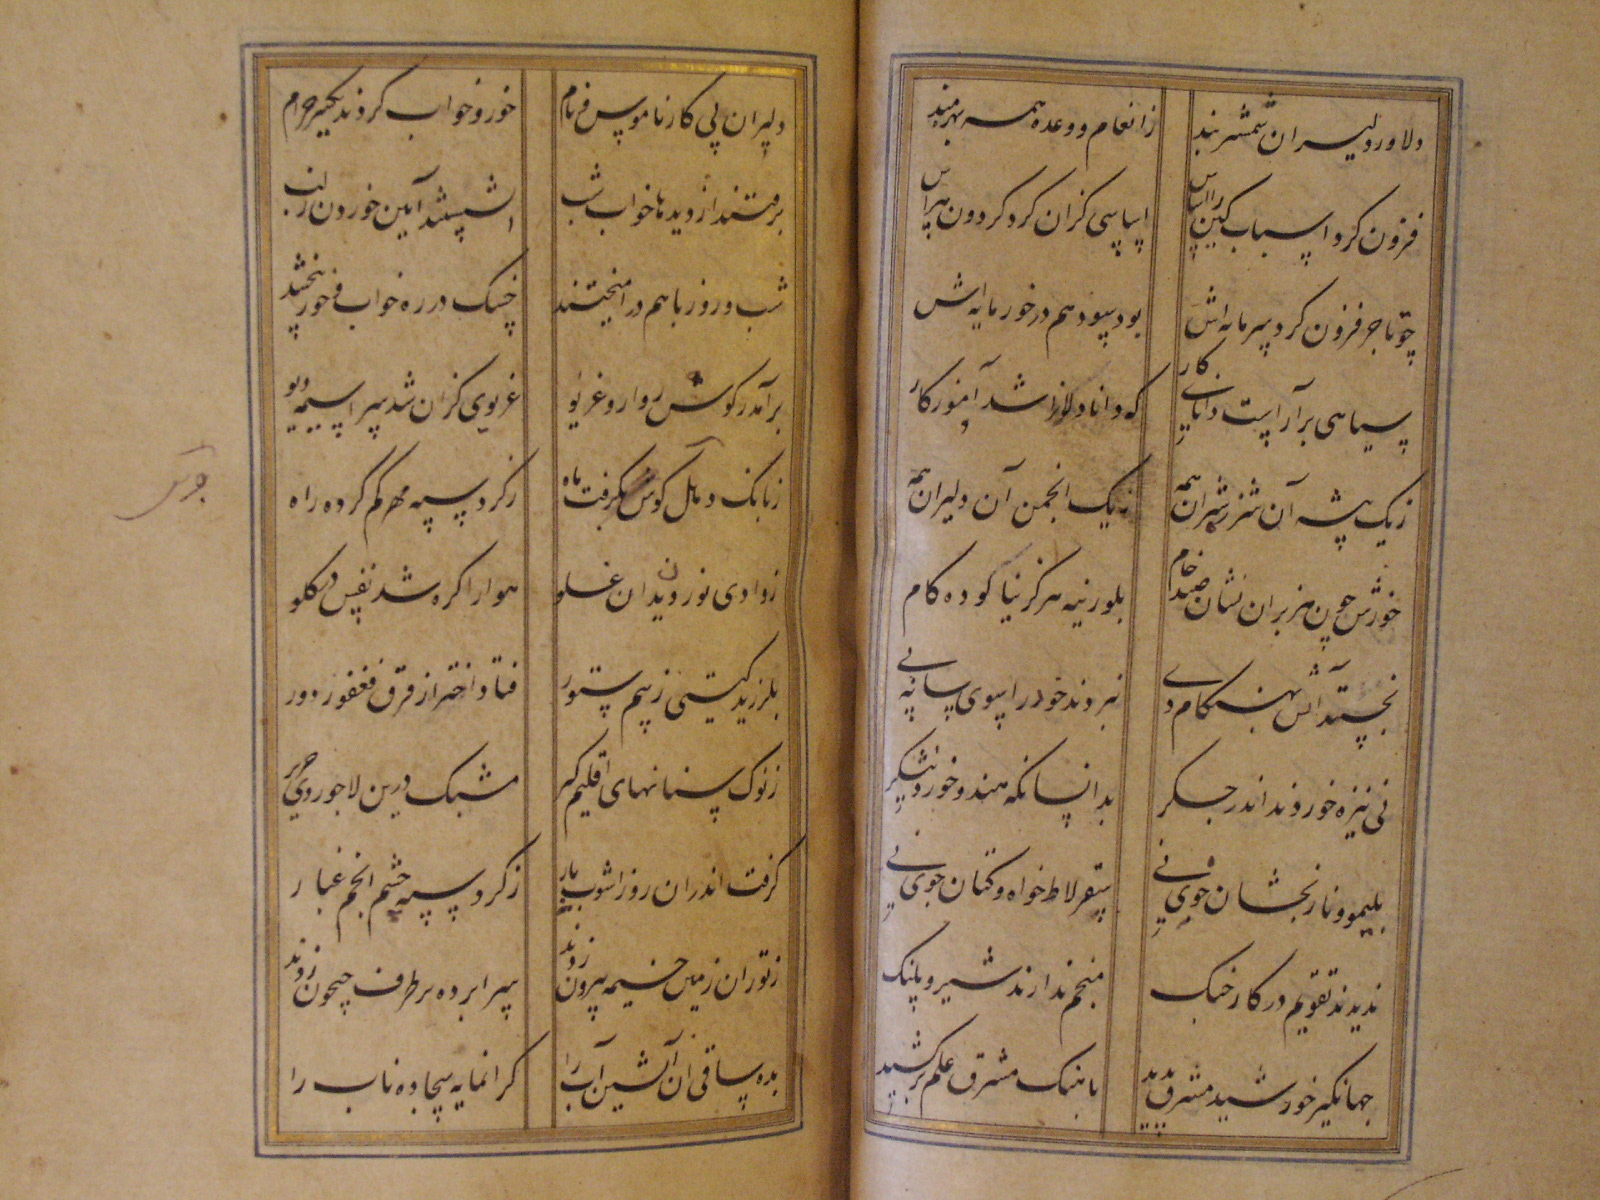 دلاور دلیران شمشیر بند زانعام و وعده همه بهره‌مند
فزون کرد اسباب کین را اساس اساسی کزان کرد گردون هراس
چو تاجر فزون کرد سرمایه‌اش بود سود هم درخور مایه‌اش
سپاهی برآراست دانای کار که دانا دلانرا شد آموزگار
زیک بیشه آن شرزه شیران همه زیک انجمن آن دلیران همه
خورش چون هزبران نشان صید خام بلوزینه هرگز نیالوده کام
نجستند آتش بهنگام دی نبردند خود را بسوی سایه پی
نی نیزه خوردند اندر جگر بدانسانکه هندو خورد نیشکر
بلیمو و نارنجشان خوی نی سقرلاط خواه و کتان جوی نی
ندیدند تقویم در کار جنگ منجم ندارند شیر و پلنگ
جهانگیر خورشید مشرق پدید باهنگ مشرق علم برکشید
دلیران پی کار ناموس و نام خور و خواب کردند یکسر حرام
برفتند از دیدها خواب شب شسستند آیین خوردن زلب
شب و روز باهم درآمیختند خسک در ره خواب و خور ریختند
برآمد ز کوس روارو غریو غریوی کزان شد سراسیمه دیو
زبانگ دهل کوس بگرفت ماه زگرد سپه مهر گم کرده راه
زوادی نوردیدن غلو هوا را گره شد نفس در گلو
بلرزید گیتی زسم ستور فتاد اختر از فرق فغفور دور
زنوک سنانهای اقلیم گیر مشبک درین لاجوردی حریر
گرفت اندران روز آشوب بار زگرد سپه چشم انجم غبار
زتوران زمین خیمه بیرون زدند سرابرده بر طرف جیحون زدند
بده ساقی آن آتشین آب را گرانمایه بیجاده ناب را